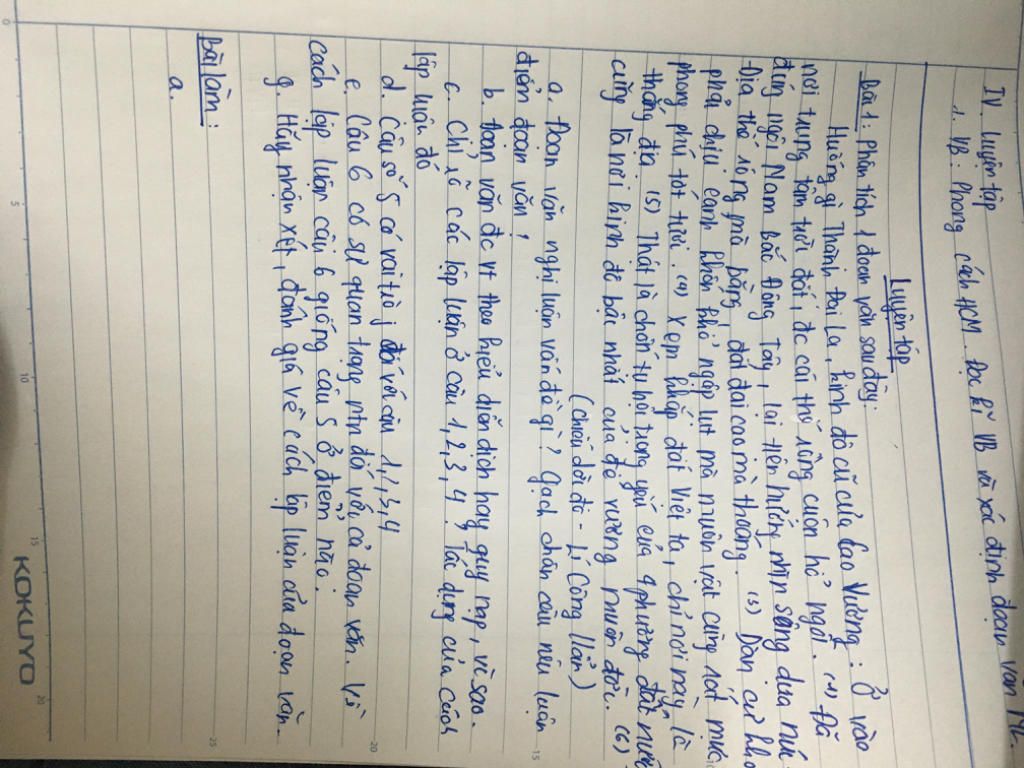 IV. Luyện tập
1. VB: Phong cách HCM. Đọc kĩ VB và xác định đoạn văn NL.
Luyện tập
Bài 1: Phân tích 1 đoạn văn sau đây:
Huống gì Thành Đại La, kinh đô cũ của Cao Vương: Ở vào
nơi trung tâm trời đất, đc cái thế rồng cuộn hổ ngồi. (1) Đã
đúng ngôi Nam Bắc Đông Tây, lại tiện hướng nhìn sông dựa núi
Địa thế rộng mà bằng, đất đai cao mà thoáng. (3) Dân cư khỏi
phải chịu cảnh khốn khổ ngập lụt mà muôn vật cũng rất mực
phong phú tốt tươi. (4) Xem khắp đất Việt ta, chỉ nơi này là
thắng địa. (5) Thật là chốn tụ hội trọng yếu của 4 phương đất nước
cũng là nơi kinh đô bậc nhất của đế vương muôn đời. (6)
(Chiếu dời đô - Lí Công Uẩn)
a. Đoạn văn nghị luận vấn đề gì? Gạch chân câu nêu luận
điểm đoạn văn!
b. Đoạn văn đc vt theo kiểu diễn dịch hay quy nạp, vì sao.
c. Chỉ rõ các lập luận ở câu 1,2,3,4. Tác dụng của cách
lập luận đó
d. Câu số 5 có vai trò j đối với câu 1,2,3,4
e. Câu 6 có sự quan trọng ntn đối với cả đoạn văn. Về
cách lập luận câu 6 giống câu 5 ở điểm nào.
g. Hãy nhận xét, đánh giá về cách lập luận của đoạn văn.
Bài làm:
a.
0
5
10
15
20
15
20
25
KOKUYO